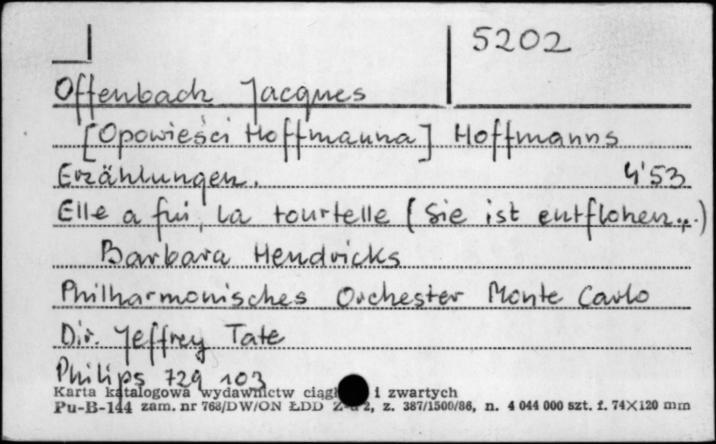 5202
Offenbach Jacques
[Opowieści Hoffmanna] Hoffmanns
Erzählungen. 4'53
Elle a fui, la tourtelle (Sie ist entflohen...)
Barbara Hendricks
Philharmonisches Orchester Monte Carlo
Dir. Jeffrey Tate
Philips 729 103
Karta katalogowa wydawnictw i zwartych
Pu-B-144 zam. nr 768/DW/ON ŁDD z. 387/1500/86, n. 4 044 000 szt. f. 74×120 mm